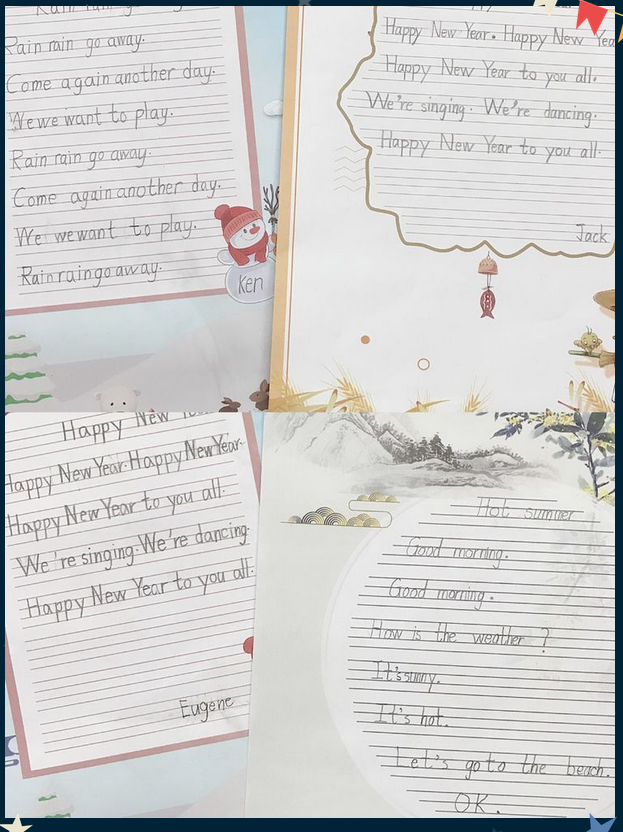 Rain rain go away.
Rain rain go away.
Come again another day.
We we want to play.
Rain rain go away.
Come again another day.
We we want to play.
Rain rain go away.
Ken
Happy New Year. Happy New Yea
Happy New Year to you all.
We're singing. We're dancing.
Happy New Year to you all.
Jack
Happy New
Happy New Year. Happy New Year.
Happy New Year to you all.
We're singing. We're dancing
Happy New Year to you all.
Eugene
Hot sumer
Good morning.
Good morning.
How is the weather ?
It's sunny.
It's hot.
Let's go to the beach.
OK.